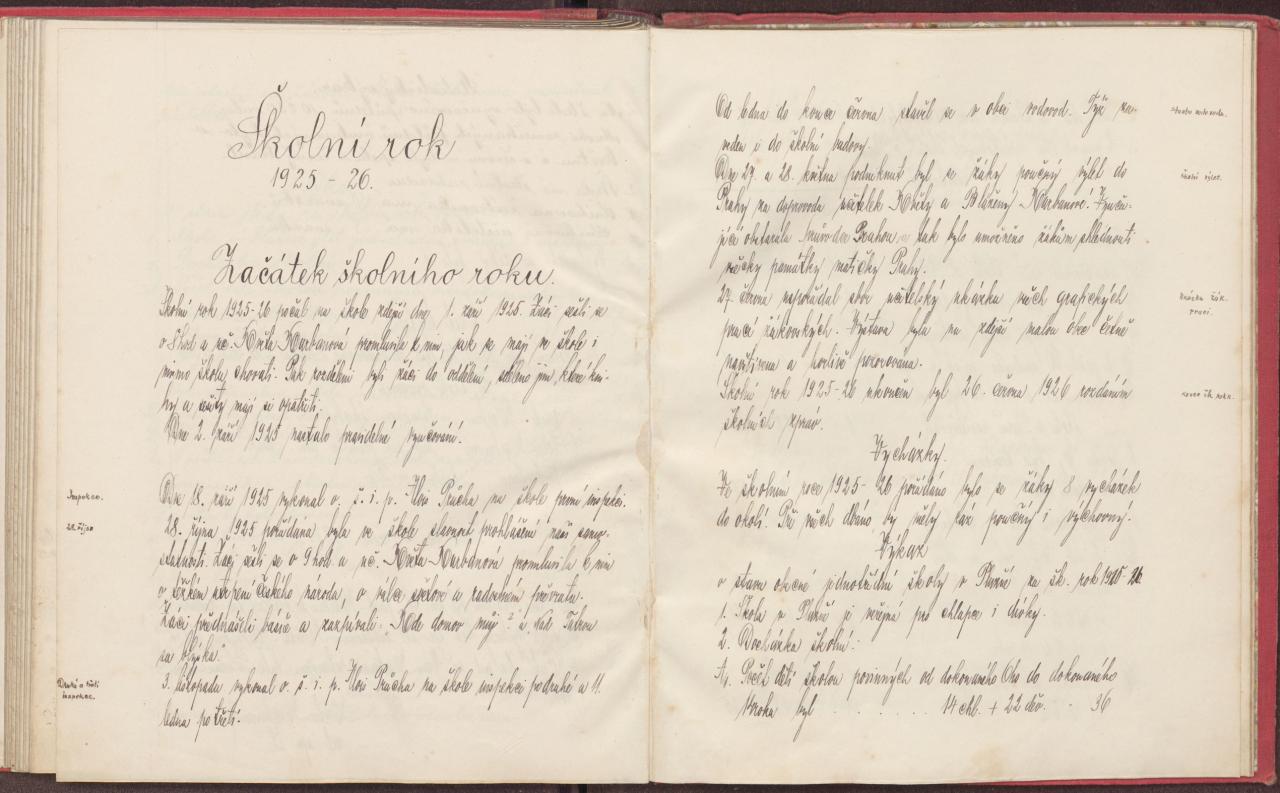 Školní rok
1925 - 26.
Začátek školního roku.
Školní rok 1925-26 počal na škole zdejší dnem 1. září 1925. Žáci sešli se
v 8 hod a uč. Květa Kurbanová promluvila k nim, jak se mají ve škole i
mimo školu chovati. Pak rozděleni byli žáci do oddělení, sděleno jim, které kni-
hy a sešity mají si opatřiti.
Dne 2. září 1925 nastalo pravidelné vyučování.
Inspekce.
Dne 18. září 1925 vykonal o. š. i. p. Alois Průcha na škole první inspekci.
28. říjen
28. října 1925 pořádána byla ve škole slavnost prohlášení naší samo-
statnosti. Žáci sešli se o 9 hod a uč. Květa Kurbanová promluvila k nim
o těžkém utrpení českého národa, o válce světové a radostném převratu.
Žáci přednášeli básně a zazpívali „Kde domov můj? a „Nad Tatrou
sa blýská“.
Druhá a třetí
inspekce.
3. listopadu vykonal o. š. i. p. Alois Průcha na škole inspekci podruhé a 11.
ledna po třetí.
Od ledna do konce června stavěl se v obci vodovod. Týž za-
Stavba vodovodu.
veden i do školní budovy.
Dne 27. a 28. května podniknut byl se žáky poučný výlet do
školní výlet.
Prahy za doprovodu učitelek Květy a Blaženy Kurbanové. Vyuču-
jící obstarala průvodce Prahou a tak bylo umožněno žákům shlédnouti
všecky památky matičky Prahy.
27. června uspořádal sbor učitelský ukázku všech grafických
Ukázka žák.
prací.
prací žákovských. Výstava byla na zdejší malou obec četně
navštívena a horlivě pozorována.
Školní rok 1925-26 ukončen byl 26. června 1926 rozdáním
Konec šk. roku.
školních zpráv.
Vycházky.
Ve školním roce 1925-26 pořádáno bylo se žáky 8 vycházek
do okolí. Při všech dbáno by měly ráz poučný i výchovný.
Výkaz
o stavu obecné jednotřídní školy v za šk. rok 1925-26.
1. Škola v je veřejná pro chlapce i dívky.
2. Docházka školní:
A. Počet dětí školou povinných od dokonaného 6ho do dokonaného
14 roku byl . . . . . . 14 chl. + 22 děv. - 36